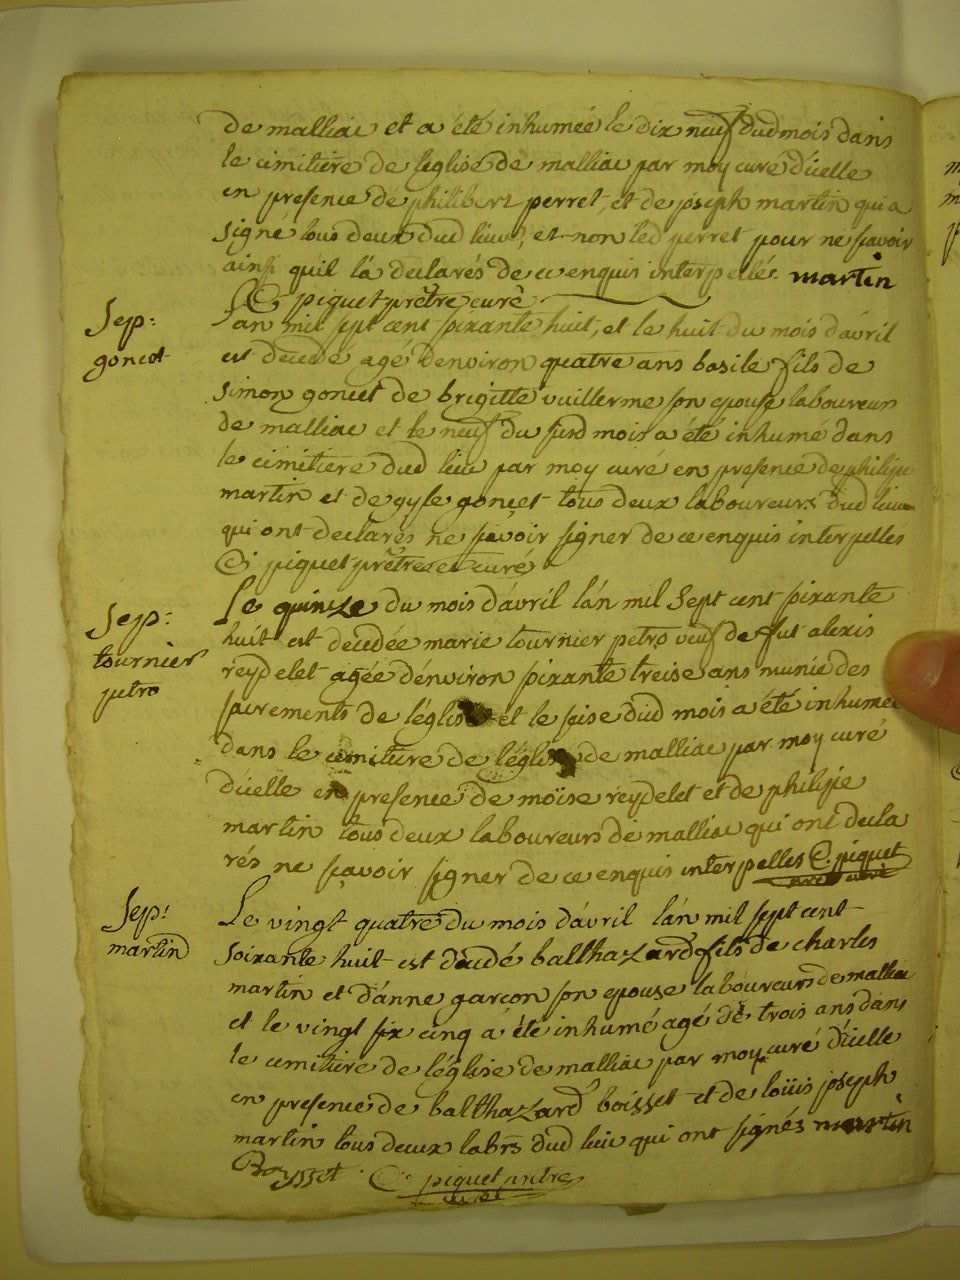 de malliac et a été inhumée le dix neuf dud mois dans
le cimitière de l'eglise de malliac par moy curé d'icelle
en presence de philibert perret, et de joseph martin qui a
signé tous deux dud lieu, et non led perret pour ne sçavoir
ainsi qu'il l'a declarés de ce enquis interpellés. martin
C piquet prêtre curé
Sep:
goncet
L'an mil sept cent soixante huit, et le huit du mois d'avril
est decedé agé d'environ quatre ans basile fils de
simon goncet de brigitte vuillerme son epouse laboureurs
de malliac et le neuf du susd mois a été inhumé dans
le cimitiere dud lieu par moy curé en presence de philipe
martin et de gyse goncet tous deux laboureurs dud lieu
qui ont declarés ne sçavoir signer de ce enquis interpellés
C. piquet prêtre et curé
Sep:
tournier
petro
Le quinze du mois d'avril l'an mil sept cent soixante
huit est decedée marie tournier petro veuf de fut alexis
reydelet agée d'environ soixante treise ans munie des
sacrements de l'église et le seise dud mois a été inhumée
dans le cimitiere de l'église de malliac par moy curé
d'icelle en presence de moïse reydelet et de philipe
martin tous deux laboureurs de malliac qui ont decla
rés ne sçavoir signer de ce enquis interpellés C. piquet
prêtre curé
Sep:
martin
Le vingt quatre du mois d'avril l'an mil sept cent
soixante huit est decedé balthazard fils de charles
martin et d'anne garçon son epouse laboureurs de malliac
et le vingt six cinq a été inhumé agé de trois ans dans
le cimitiere de l'église de malliac par moy curé d'icelle
en presence de balthazard boisset et de loüis joseph
martin tous deux labrs dud lieu qui ont signés martin
Boysset C. piquet prêtre
curé